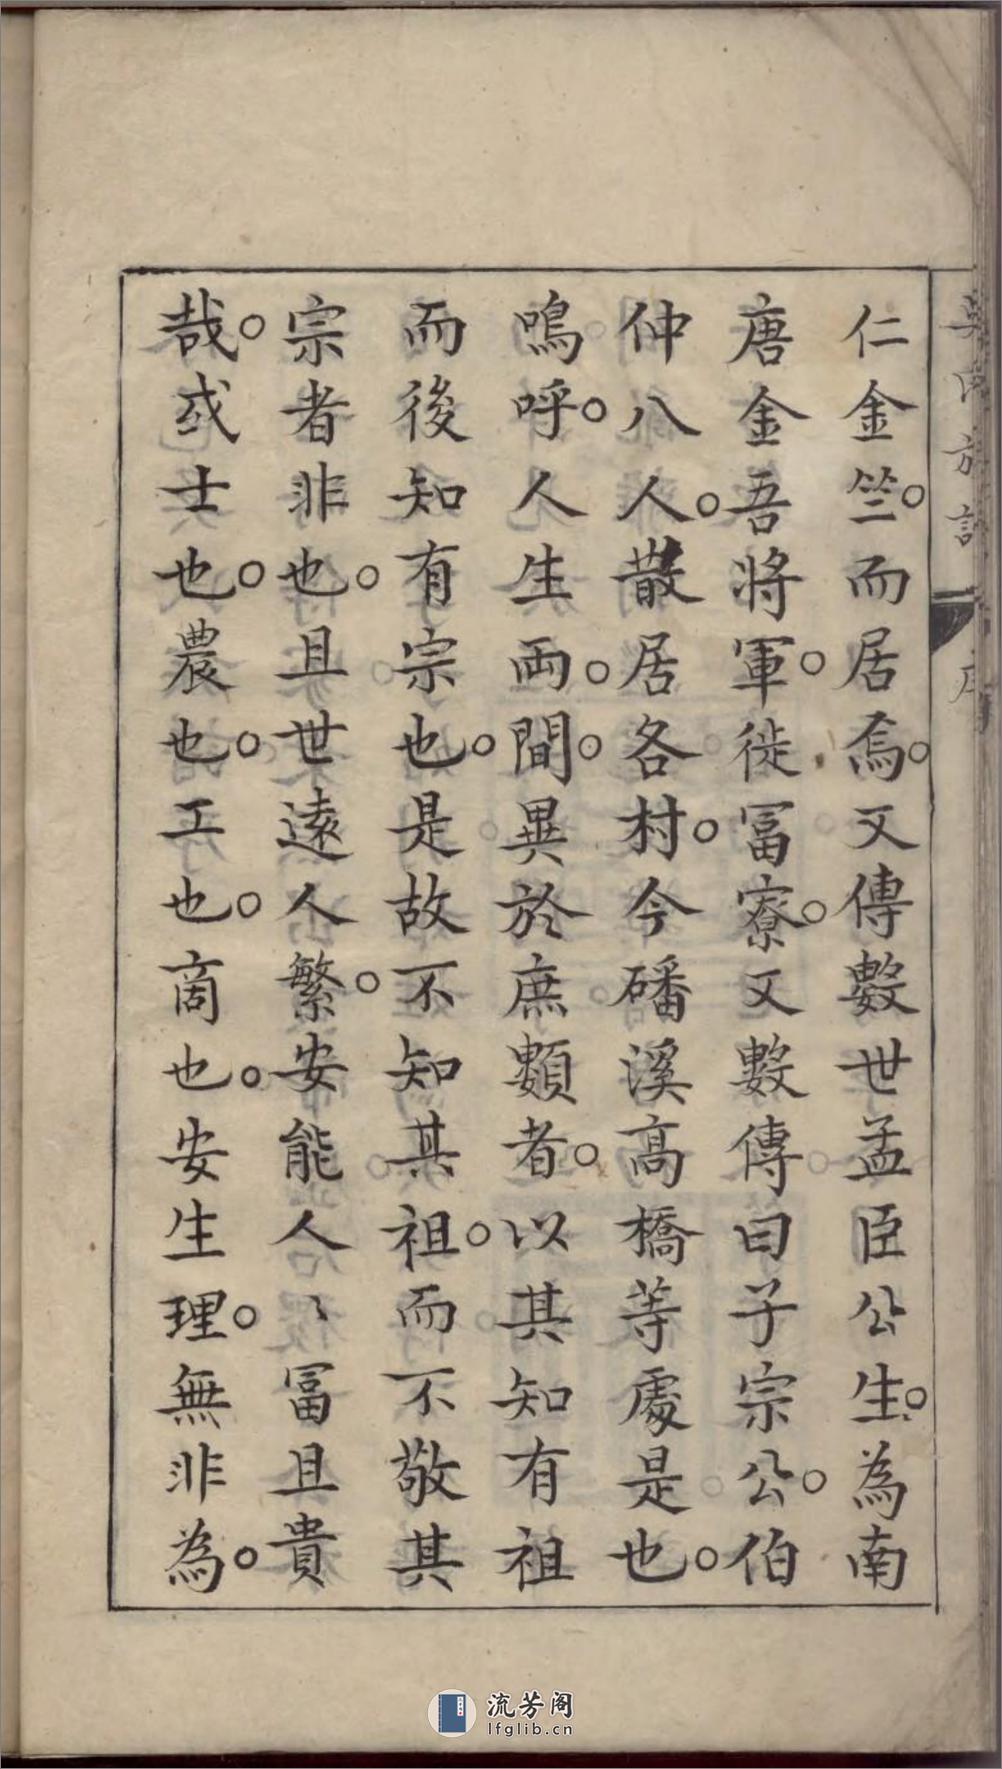 仁金竺。而居焉。又傳數世孟臣公生。為南
唐金吾將軍。徙冨寮。又數傳曰子宗公。伯
仲八人。散居各村。今磻溪高橋等處是也。
鳴呼。人生両。間。異於庶類者。以其知有祖
而後知有宗也。是故不知其祖。而不敬其
宗者非也。且世遠人繁。安能人〻冨且貴
哉。或士也。農也。工也。商也。安生理。無非為。
流芳阁
lfglib.cn